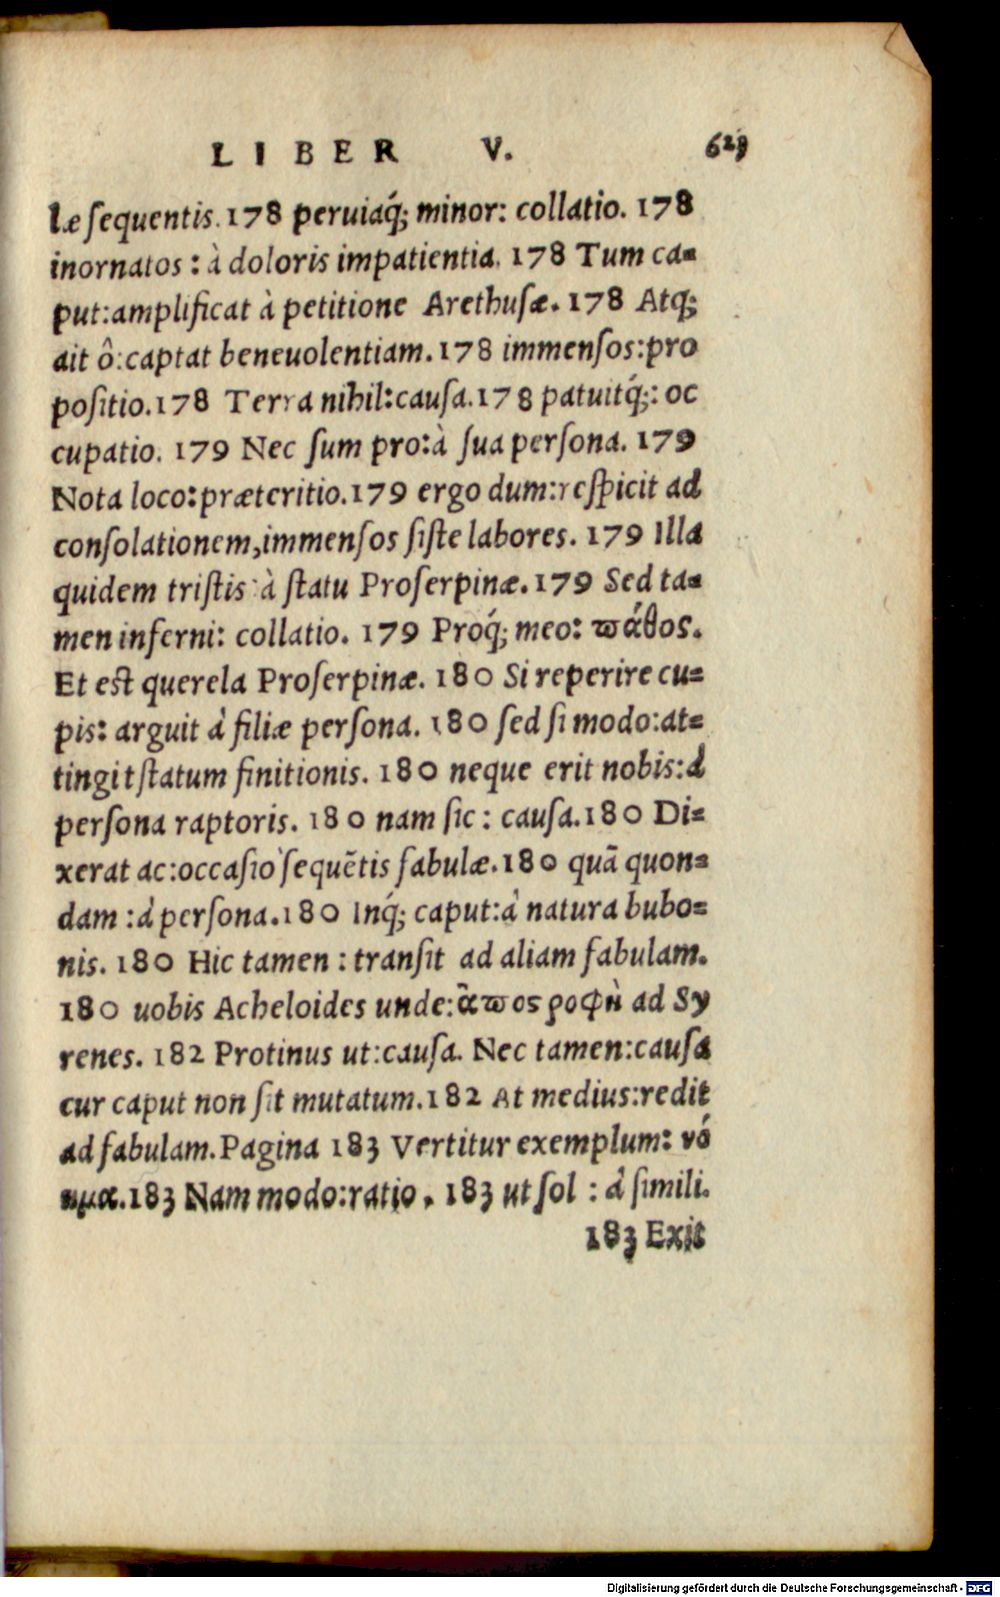 LIBER V. 623
læ sequentis. 178 peruiaq́; minor: collatio. 178
inornatos: à doloris impatientia. 178 Tum ca-
put: amplificat à petitione Arethusæ. 178 Atq;
ait ô: captat beneuolentiam. 178 immensos: pro
positio. 178 Terra nihil: causa. 178 patuitq́;: oc
cupatio. 179 Nec sum pro: à sua persona. 179
Nota loco: præteritio. 179 ergo dum: respicit ad
consolationem, immensos siste labores. 179 Illa
quidem tristis à statu Proserpinæ. 179 Sed ta-
men inferni: collatio. 179 Proq́; meo: πάθος.
Et est querela Proserpinæ. 180 Si reperire cu-
pis: arguit à filiæ persona. 180 sed si modo: at-
tingit statum finitionis. 180 neque erit nobis: à
persona raptoris. 180 nam sic: causa. 180 Di-
xerat ac: occasio sequẽtis fabulæ. 180 quã quon-
dam: à persona. 180 Inq́; caput: à natura bubo-
nis. 180 Hic tamen: transit ad aliam fabulam.
180 uobis Acheloides unde: ἀποςροφὴ ad Sy
renes. 182 Protinus ut: causa. Nec tamen: causa
cur caput non sit mutatum. 182 At medius: redit
ad fabulam. Pagina 183 Vertitur exemplum: νό
ημα. 183 Nam modo: ratio. 183 ut sol: à simili.
183 Exit
Digitalisierung gefördert durch die Deutsche Forschungsgemeinschaft - DFG